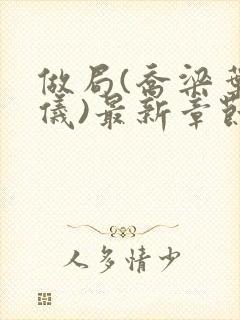 做局(乔梁叶
儀)最新章節
人多情少